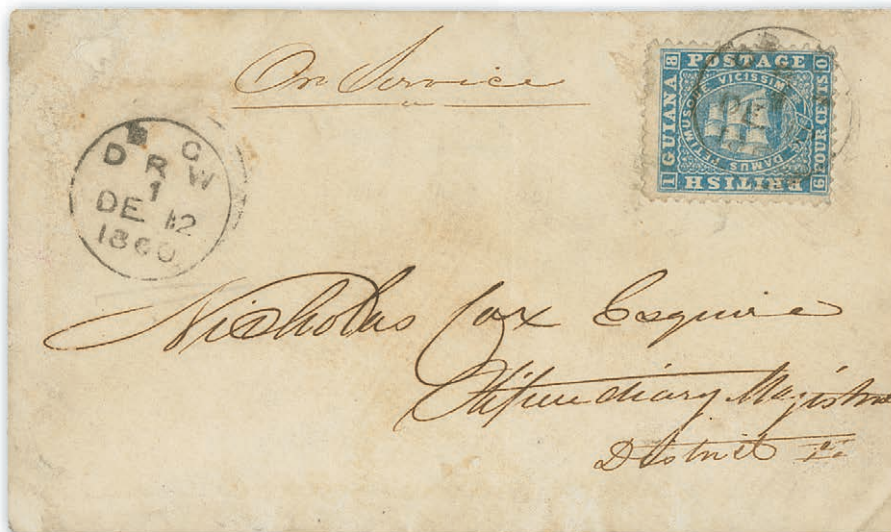 On Service
POSTAGE
GUIANA
BRITISH
FOUR CENTS
DAMUS PETIMUSQUE VICISSIM
1 8 6 0
D R C W
1
DE 12
1860
DE
Nicholas Cox Esquire
Stipendiary Magistra
District